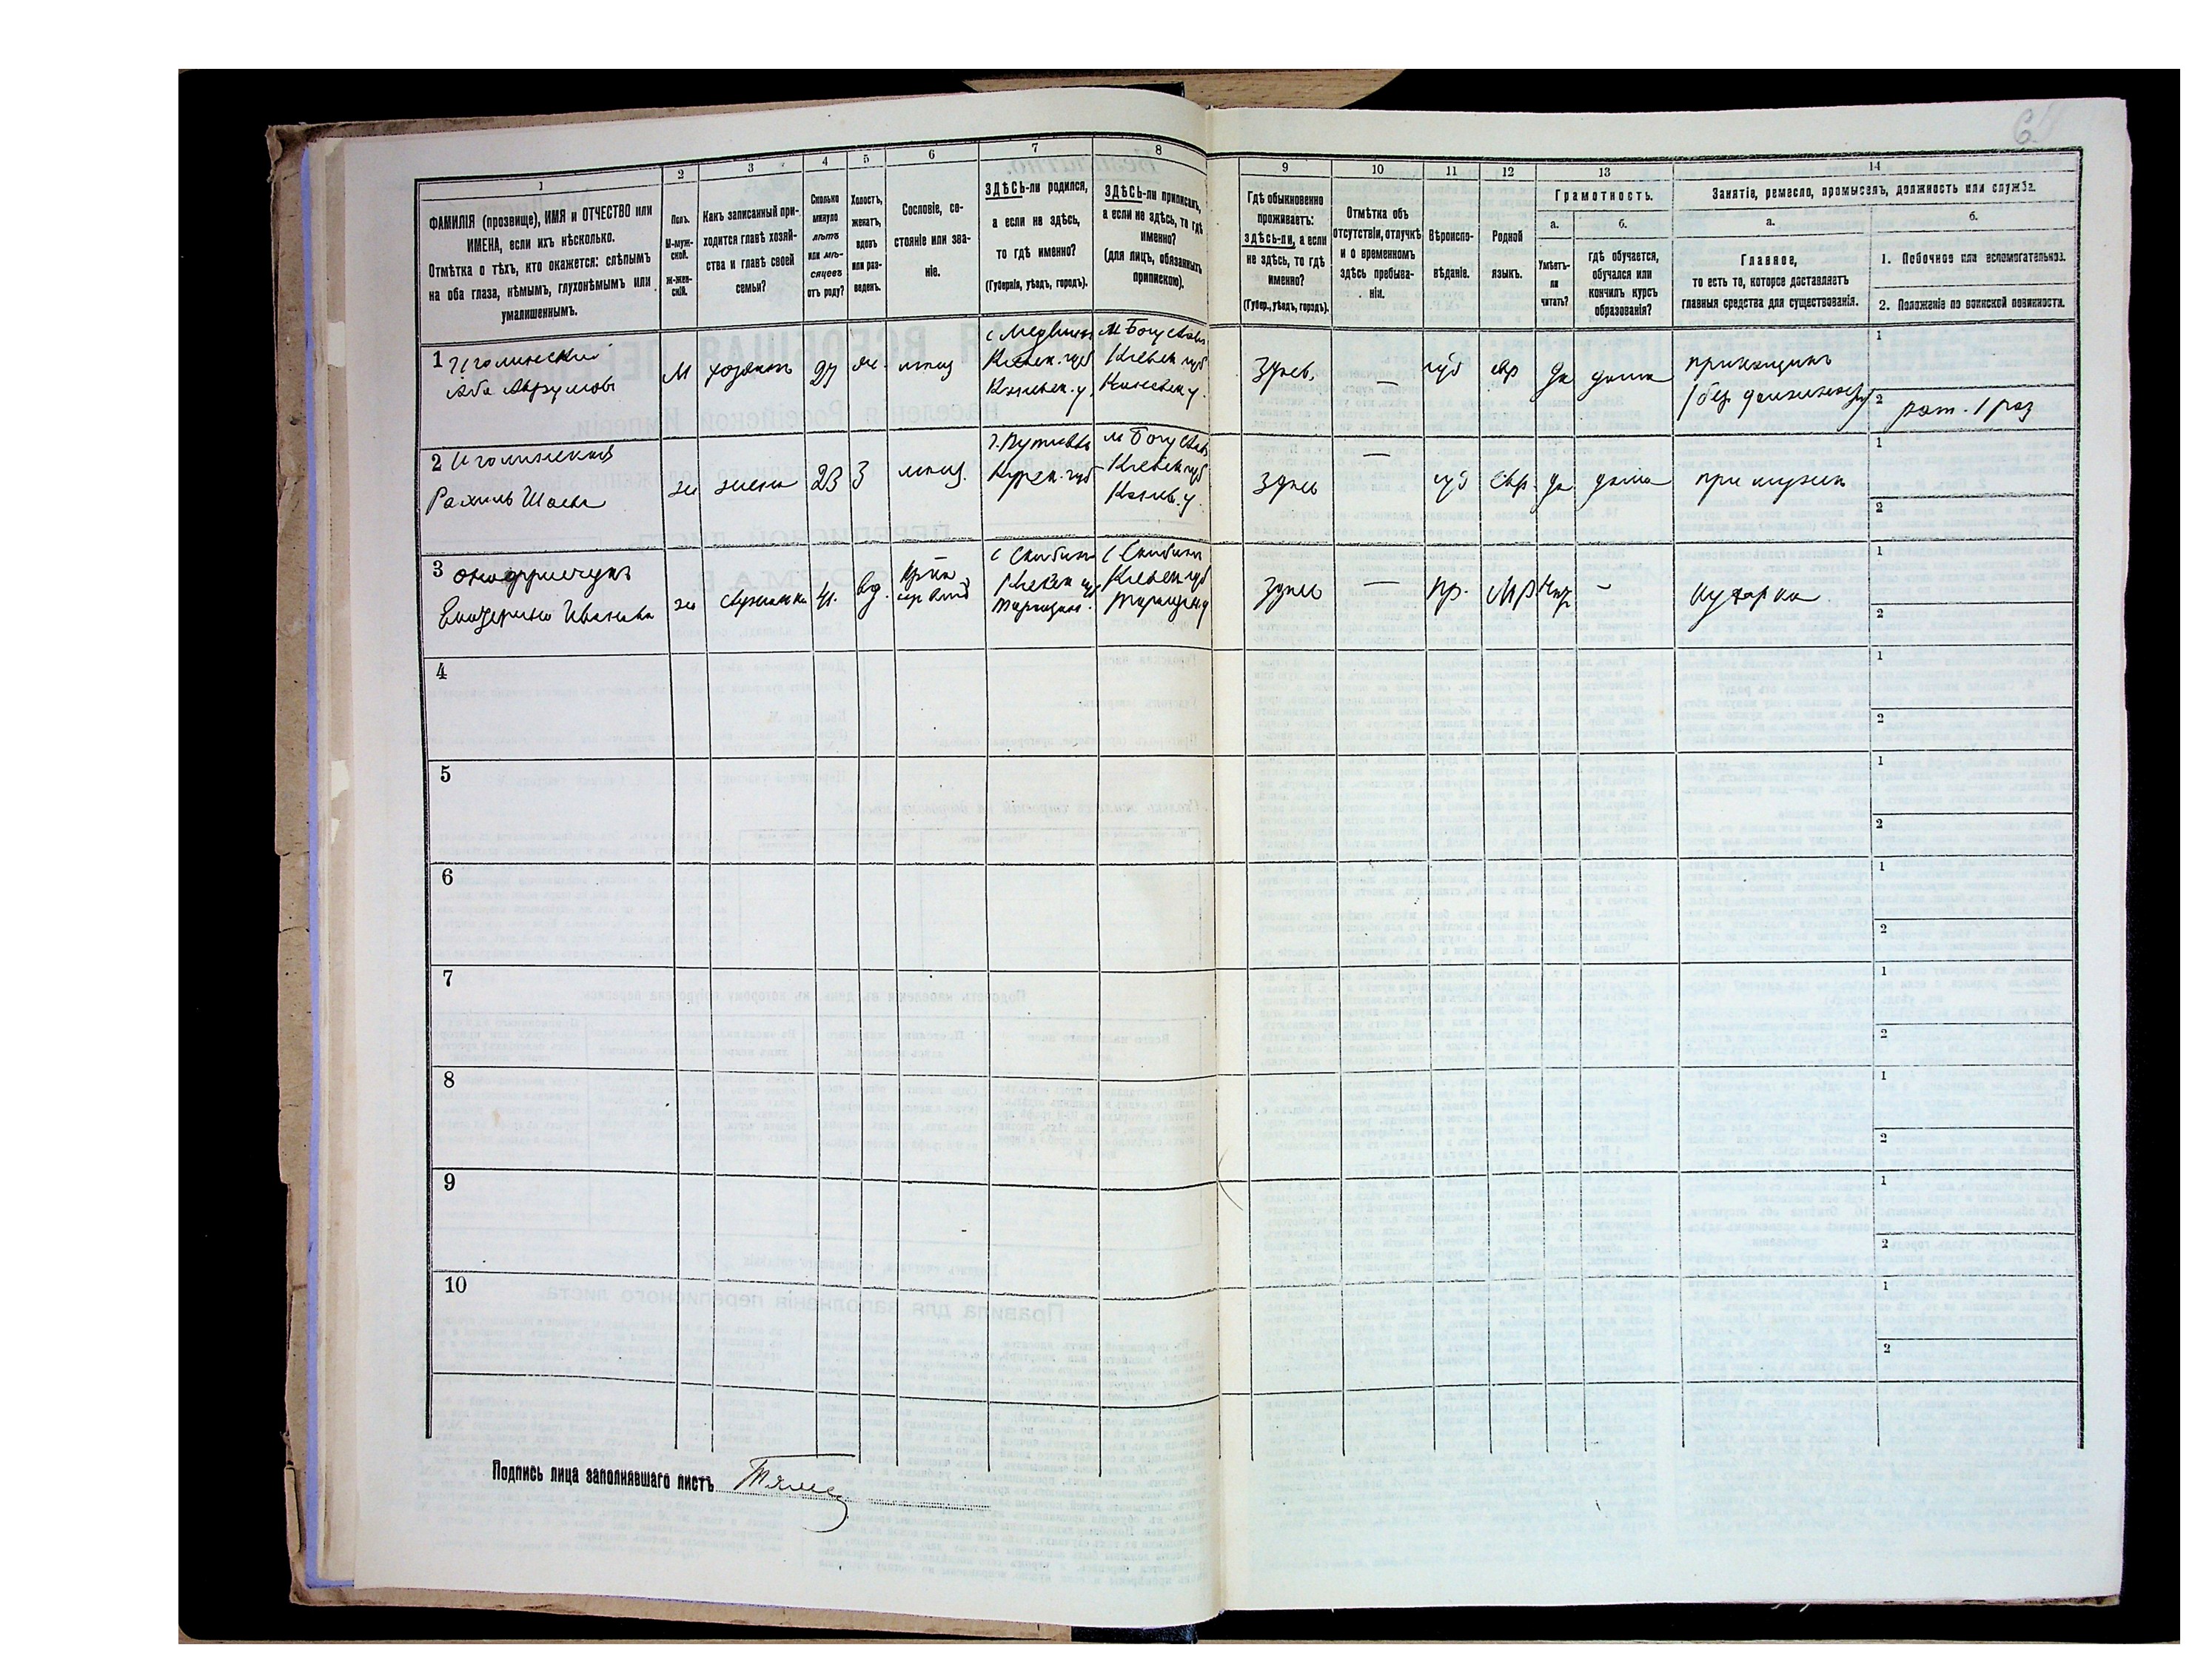 6
1 2 3 4 5 6 7 8 9 10 11 12 13 14
ФАМИЛІЯ (прозвище), ИМЯ и ОТЧЕСТВО или
ИМЕНА, если ихъ нѣсколько.
Отмѣтка о тѣхъ, кто окажется: слѣпымъ
на оба глаза, нѣмымъ, глухонѣмымъ или
умалишеннымъ.
Полъ.
М-муж-
ской.
Ж-жен-
скій.
Какъ записанный при-
ходится главѣ хозяй-
ства и главѣ своей
семьи?
Сколько
минуло
лѣтъ
или мѣ-
сяцевъ
отъ роду?
Холостъ,
женатъ,
вдовъ
или раз-
веденъ.
Сословіе, со-
стояніе или зва-
ніе.
ЗДѢСЬ-ли родился,
а если не здѣсь,
то гдѣ именно?
(Губернія, уѣздъ, городъ).
ЗДѢСЬ-ли приписанъ,
а если не здѣсь, то гдѣ
именно?
(для лицъ, обязанныхъ
припискою).
Гдѣ обыкновенно
проживаетъ:
здѣсь-ли, а если
не здѣсь, то гдѣ
именно?
(Губер., уѣздъ, городъ).
Отмѣтка объ
отсутствіи, отлучкѣ
и о временномъ
здѣсь пребыва-
ніи.
Вѣроиспо-
вѣданіе.
Родной
языкъ.
Грамотность.
а.
Умѣетъ-
ли
читать?
б.
гдѣ обучается,
обучался или
кончилъ курсъ
образованія?
Занятіе, ремесло, промыселъ, должность или служба.
а.
Главное,
то есть то, которое доставляетъ
главныя средства для существованія.
б.
1. Побочное или вспомогательное.
2. Положеніе по воинской повинности.
1 Иголинскій
Аба Аврумовъ
М
хозяинъ
27
же.
мѣщ
Кіевск. губ
Каневск. у.
м Богуславъ
Кіевск губ
Каневск у.
Здѣсь
—
іуд
евр
да
дома
прикащикъ
1
2 рат. 1 раз
2 Иголинская
Рахиль Шаева
ж
жена
23
З
мѣщ.
г. Путивль
Курск. губ
м Богуславъ
Кіевск губ
Канев. у.
Здѣсь
—
іуд
евр.
да
дома
при мужѣ
1
2
3 Онофрійчукъ
Екатерина Иванова
ж
служанка
41.
вд.
с Скибинъ
Кіевск губ
Таращан.
с Скибинъ
Кіевск губ
Таращ у
здѣсь
—
пр.
МР
Нѣт
—
кухарка
1
2
4
1
2
5
1
2
6
1
2
7
1
2
8
1
2
9
1
2
10
1
2
Подпись лица заполнявшаго листъ